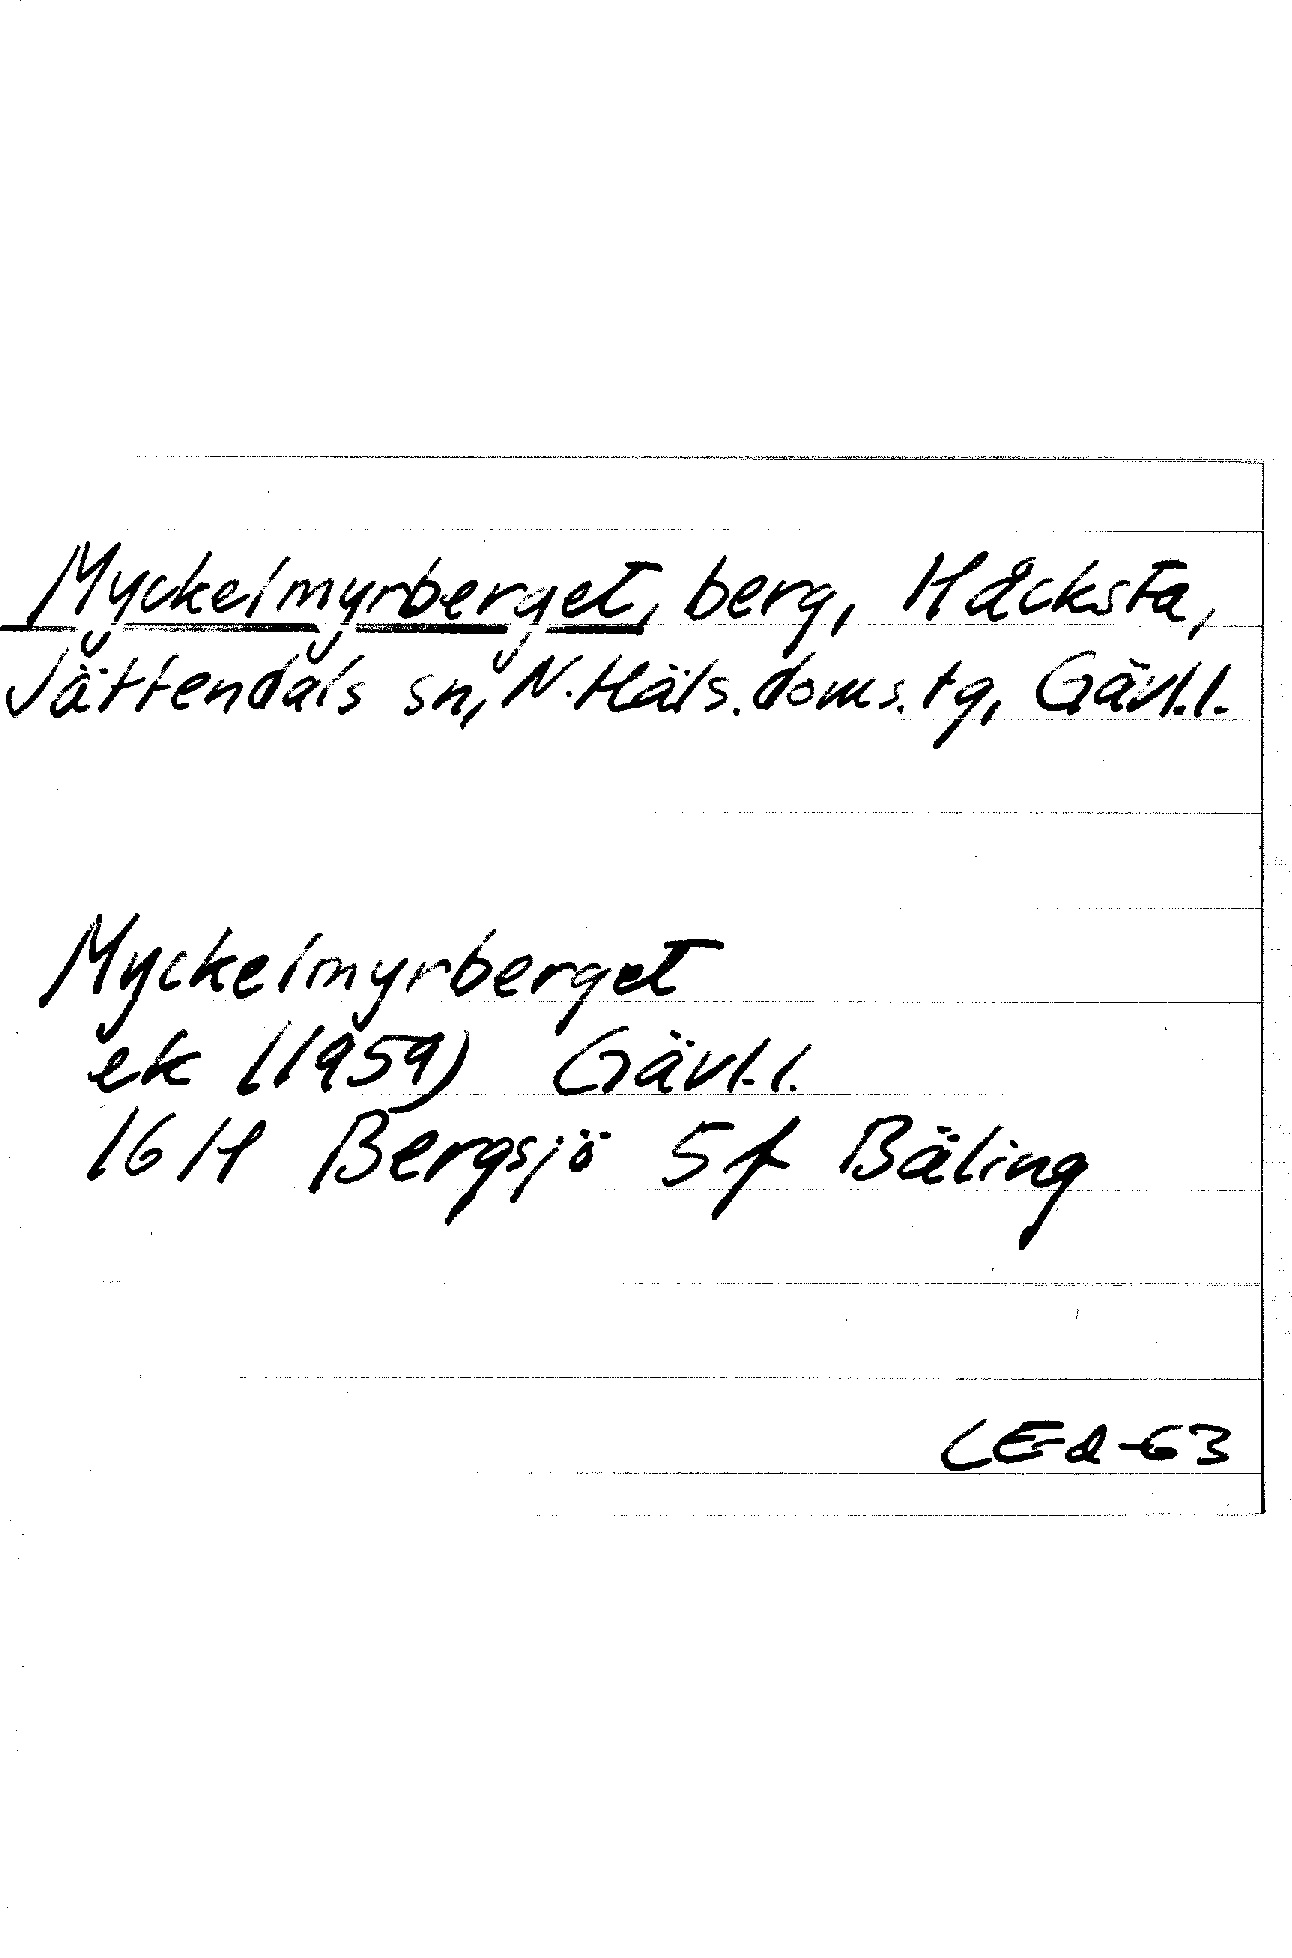 Myckelmyrberget, berg, Håcksta,
Jättendals sn, N. Häls. doms. tg, Gävl. l.
Myckelmyrberget
ek (1959) Gävl. l.
16 H Bergsjö 5 f Bäling
LEd-63